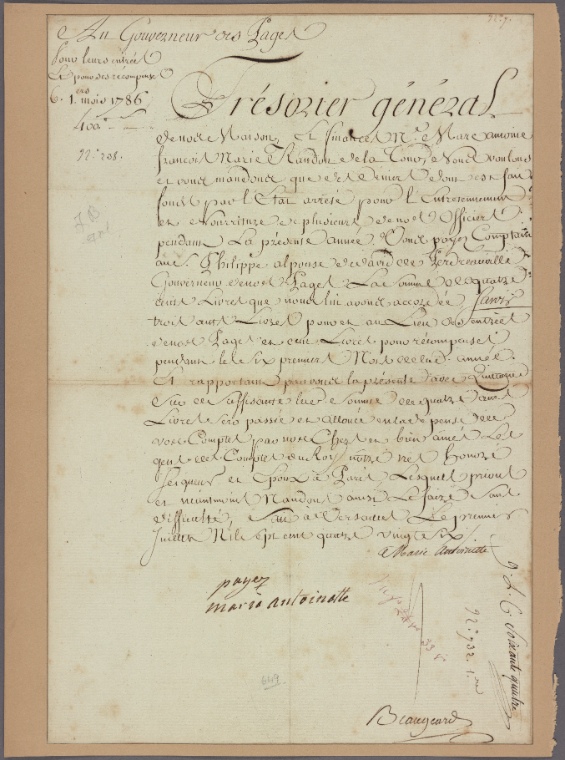 Au Gouverneur des Pages
Pour leurs entrées
Et pour des récompenses
6. 1.ers mois 1786
400.
N.º 208.
Trésorier général
de notre Maison, et finances M.e Marc antoine
françois Marie Randon de la Tour, Nous voulons
et vous mandons que des deniers de
fonds par l'Etat arresté pour l'Entretennement
et Nourriture de plusieurs de nos Officiers
pendant La présente année, Vous payez Comptant
au S. Philippe alponse de
Gouverneur de nos Pages La somme de quatre
cent Livres que nous lui avons accordée Savoir
trois cents Livres pour et au Lieu des entrées
de nos Pages et cent Livres pour récompenses
pendant les six premiers Mois de lad. année.
Et rapportant par vous la présente avec Quittance
de suffisante lad. somme de quatre cent
Livres sera passée et allouée en la dépense de
vos Comptes par nos Chers et bien amés Les
gens des Comptes du Roy notre très honoré
Seigneur et Epoux à Paris Lesquels prions
et néantmoins Mandons ainsi Le faire Sans
difficulté, fait à Versailles Le premier
Juillet Mil sept cent quatre vingt six
Marie Antoinette
payez
marie antoinette
N.º 732.
soixante quatre
Beaugeard
649